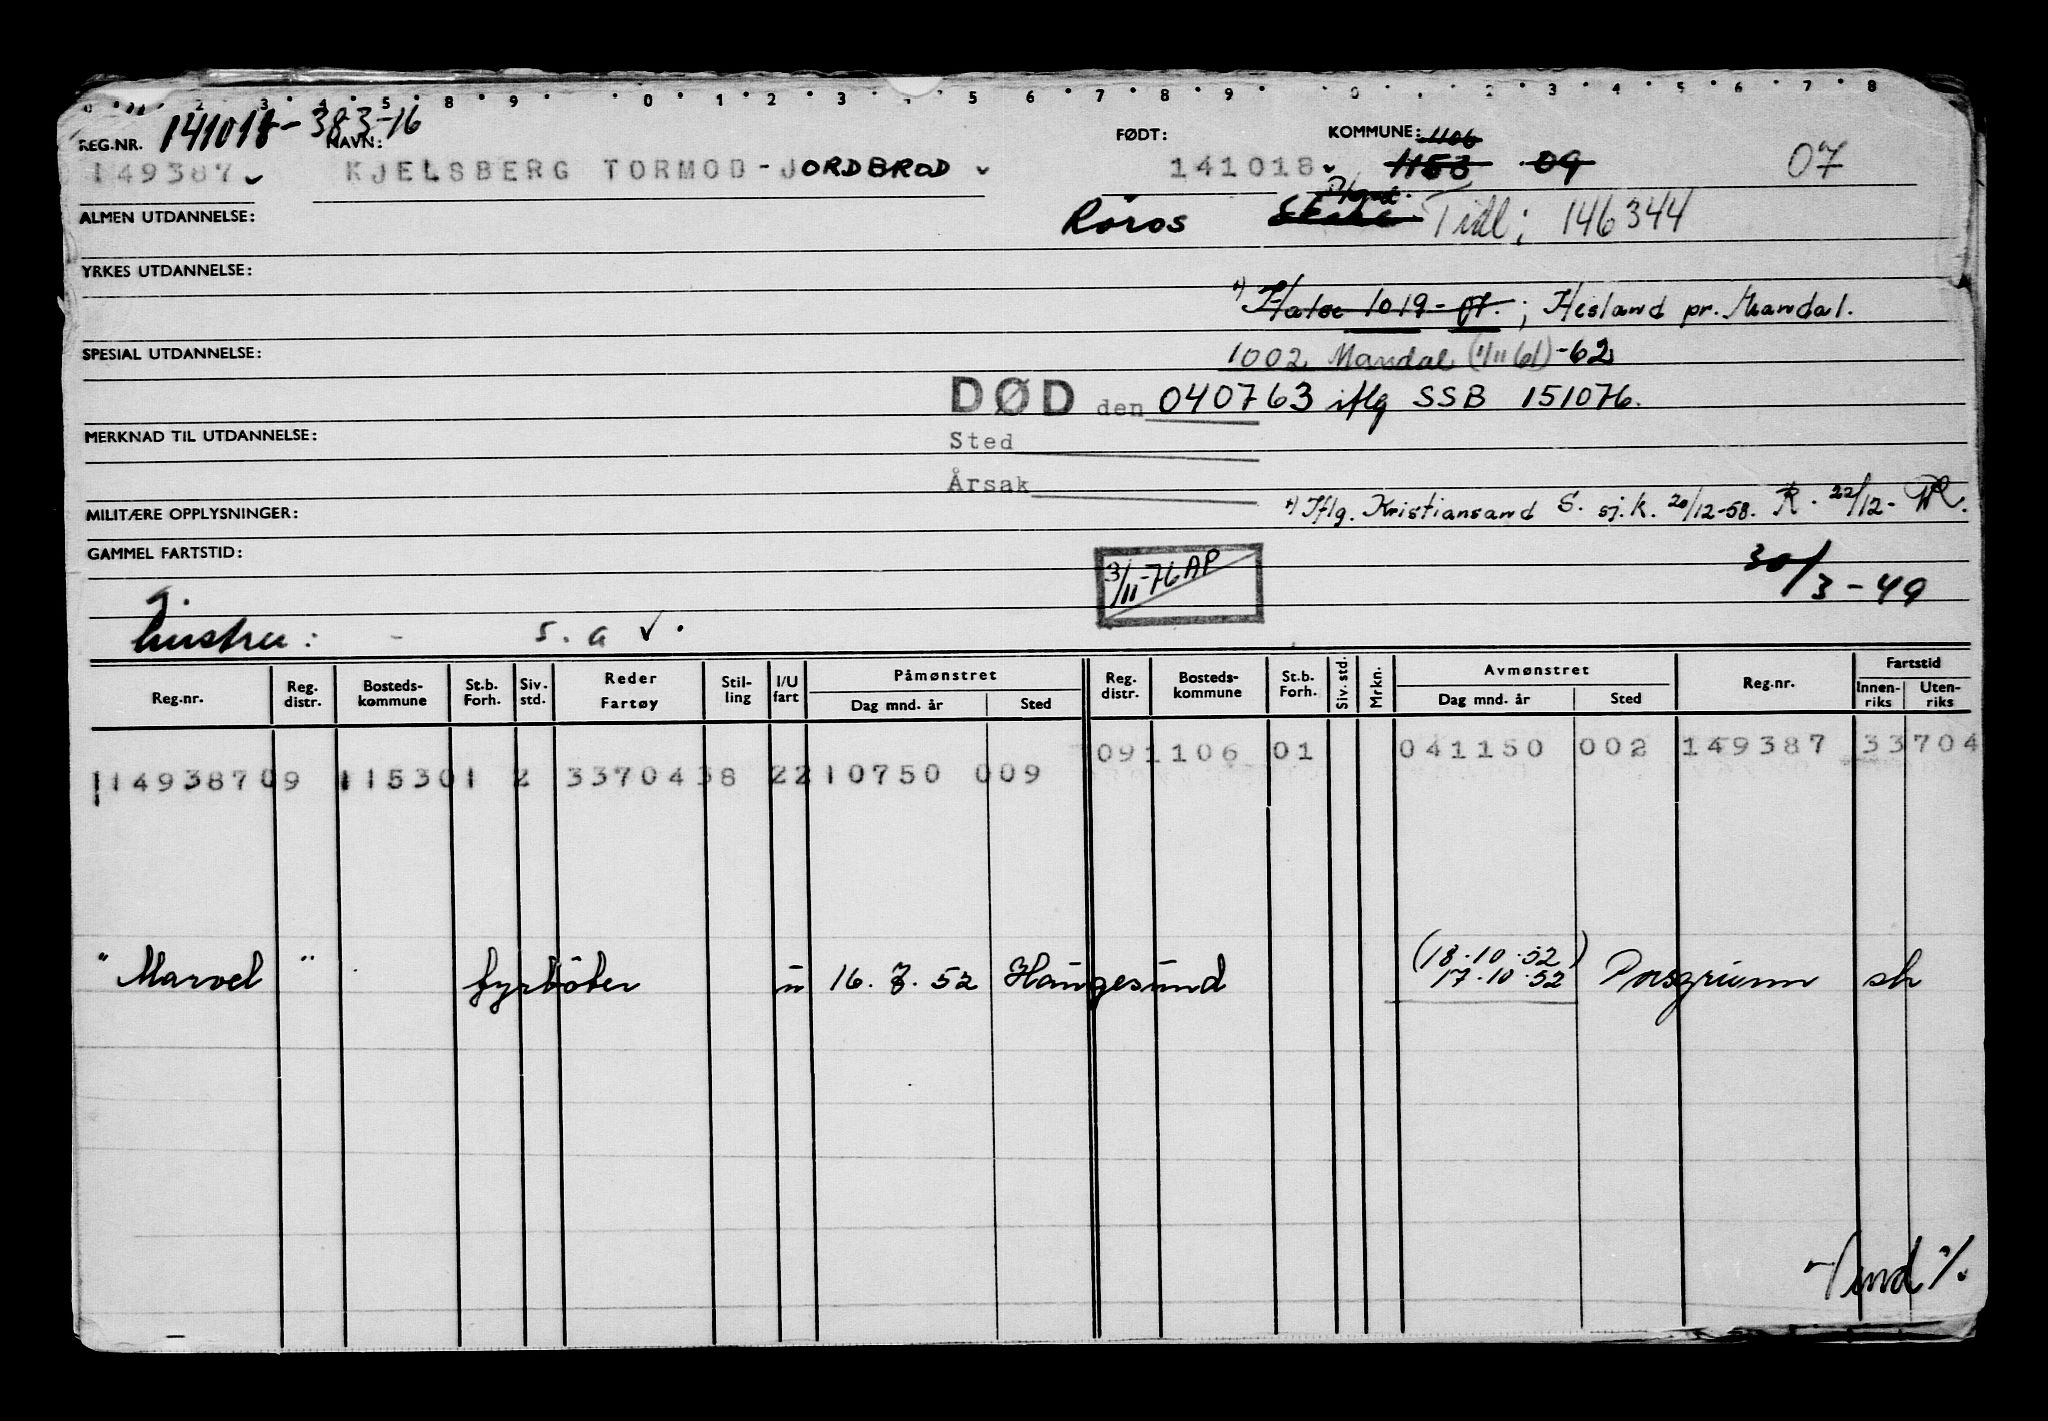 REG.NR. 141018-38316
NAVN:
FØDT:
KOMMUNE: 1106
149387 KJELSBERG TORMOD-JORDBROD 141018 1153 09 07
ALMEN UTDANNELSE:
Röros Tidl; 146344
YRKES UTDANNELSE:
*) Halse 1019-07. ; Hesland pr. Mandal.
SPESIAL UTDANNELSE:
1002 Mandal (1/11 61) -62
DØD den 040763 iflg SSB 151076.
MERKNAD TIL UTDANNELSE:
Sted
Årsak
MILITÆRE OPPLYSNINGER:
*) Iflg. Kristiansand S. sj.k. 20/12-58. R. 22/12-
GAMMEL FARTSTID:
3/11-76 AP
30/3-49
g.
hustru: - s. a ✓.
Reg.nr. Reg. distr. Bosteds-kommune St.b. Forh. Siv. std. Reder Fartøy Stil-ling I/U fart Påmønstret Dag mnd. år Sted Reg. distr. Bosteds-kommune St.b. Forh. Siv. std. Mrkn. Avmønstret Dag mnd. år Sted Reg.nr. Fartstid Innen-riks Uten-riks
091106 01 041150 002 149387 33704
114938709 115301 2 3370438 2210750 009
(18.10.52)
"Marvel" fyrböter u 16.7.52 Haugesund 17.10.52 Porsgrunn sk
Vend %.